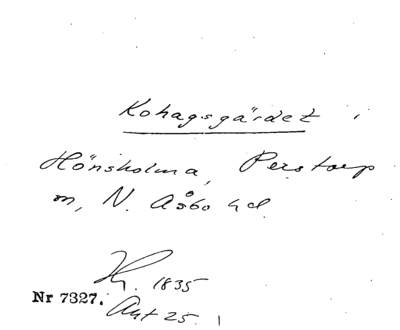 Kohagsgärdet i
Hönsholma, Perstorp
m, N. Åsbo hd.
Hy. 1835
Nr 7327. Akt 25.